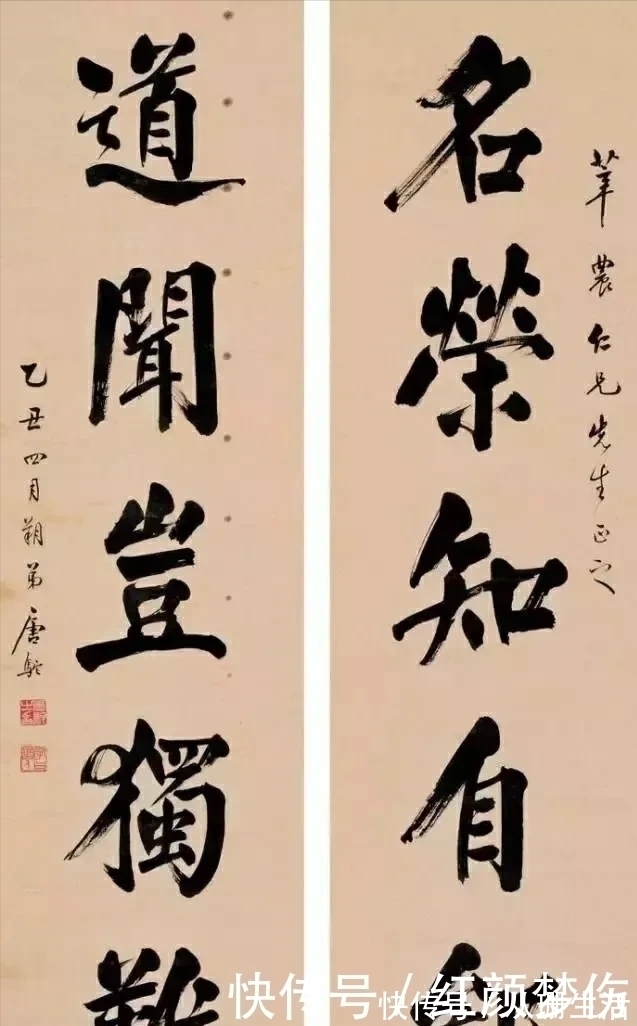 莘農仁兄先生正之
名榮知自
道聞豈獨難
乙丑四月朔弟唐駝
快传号 / 红颜梦伤
快传号 /